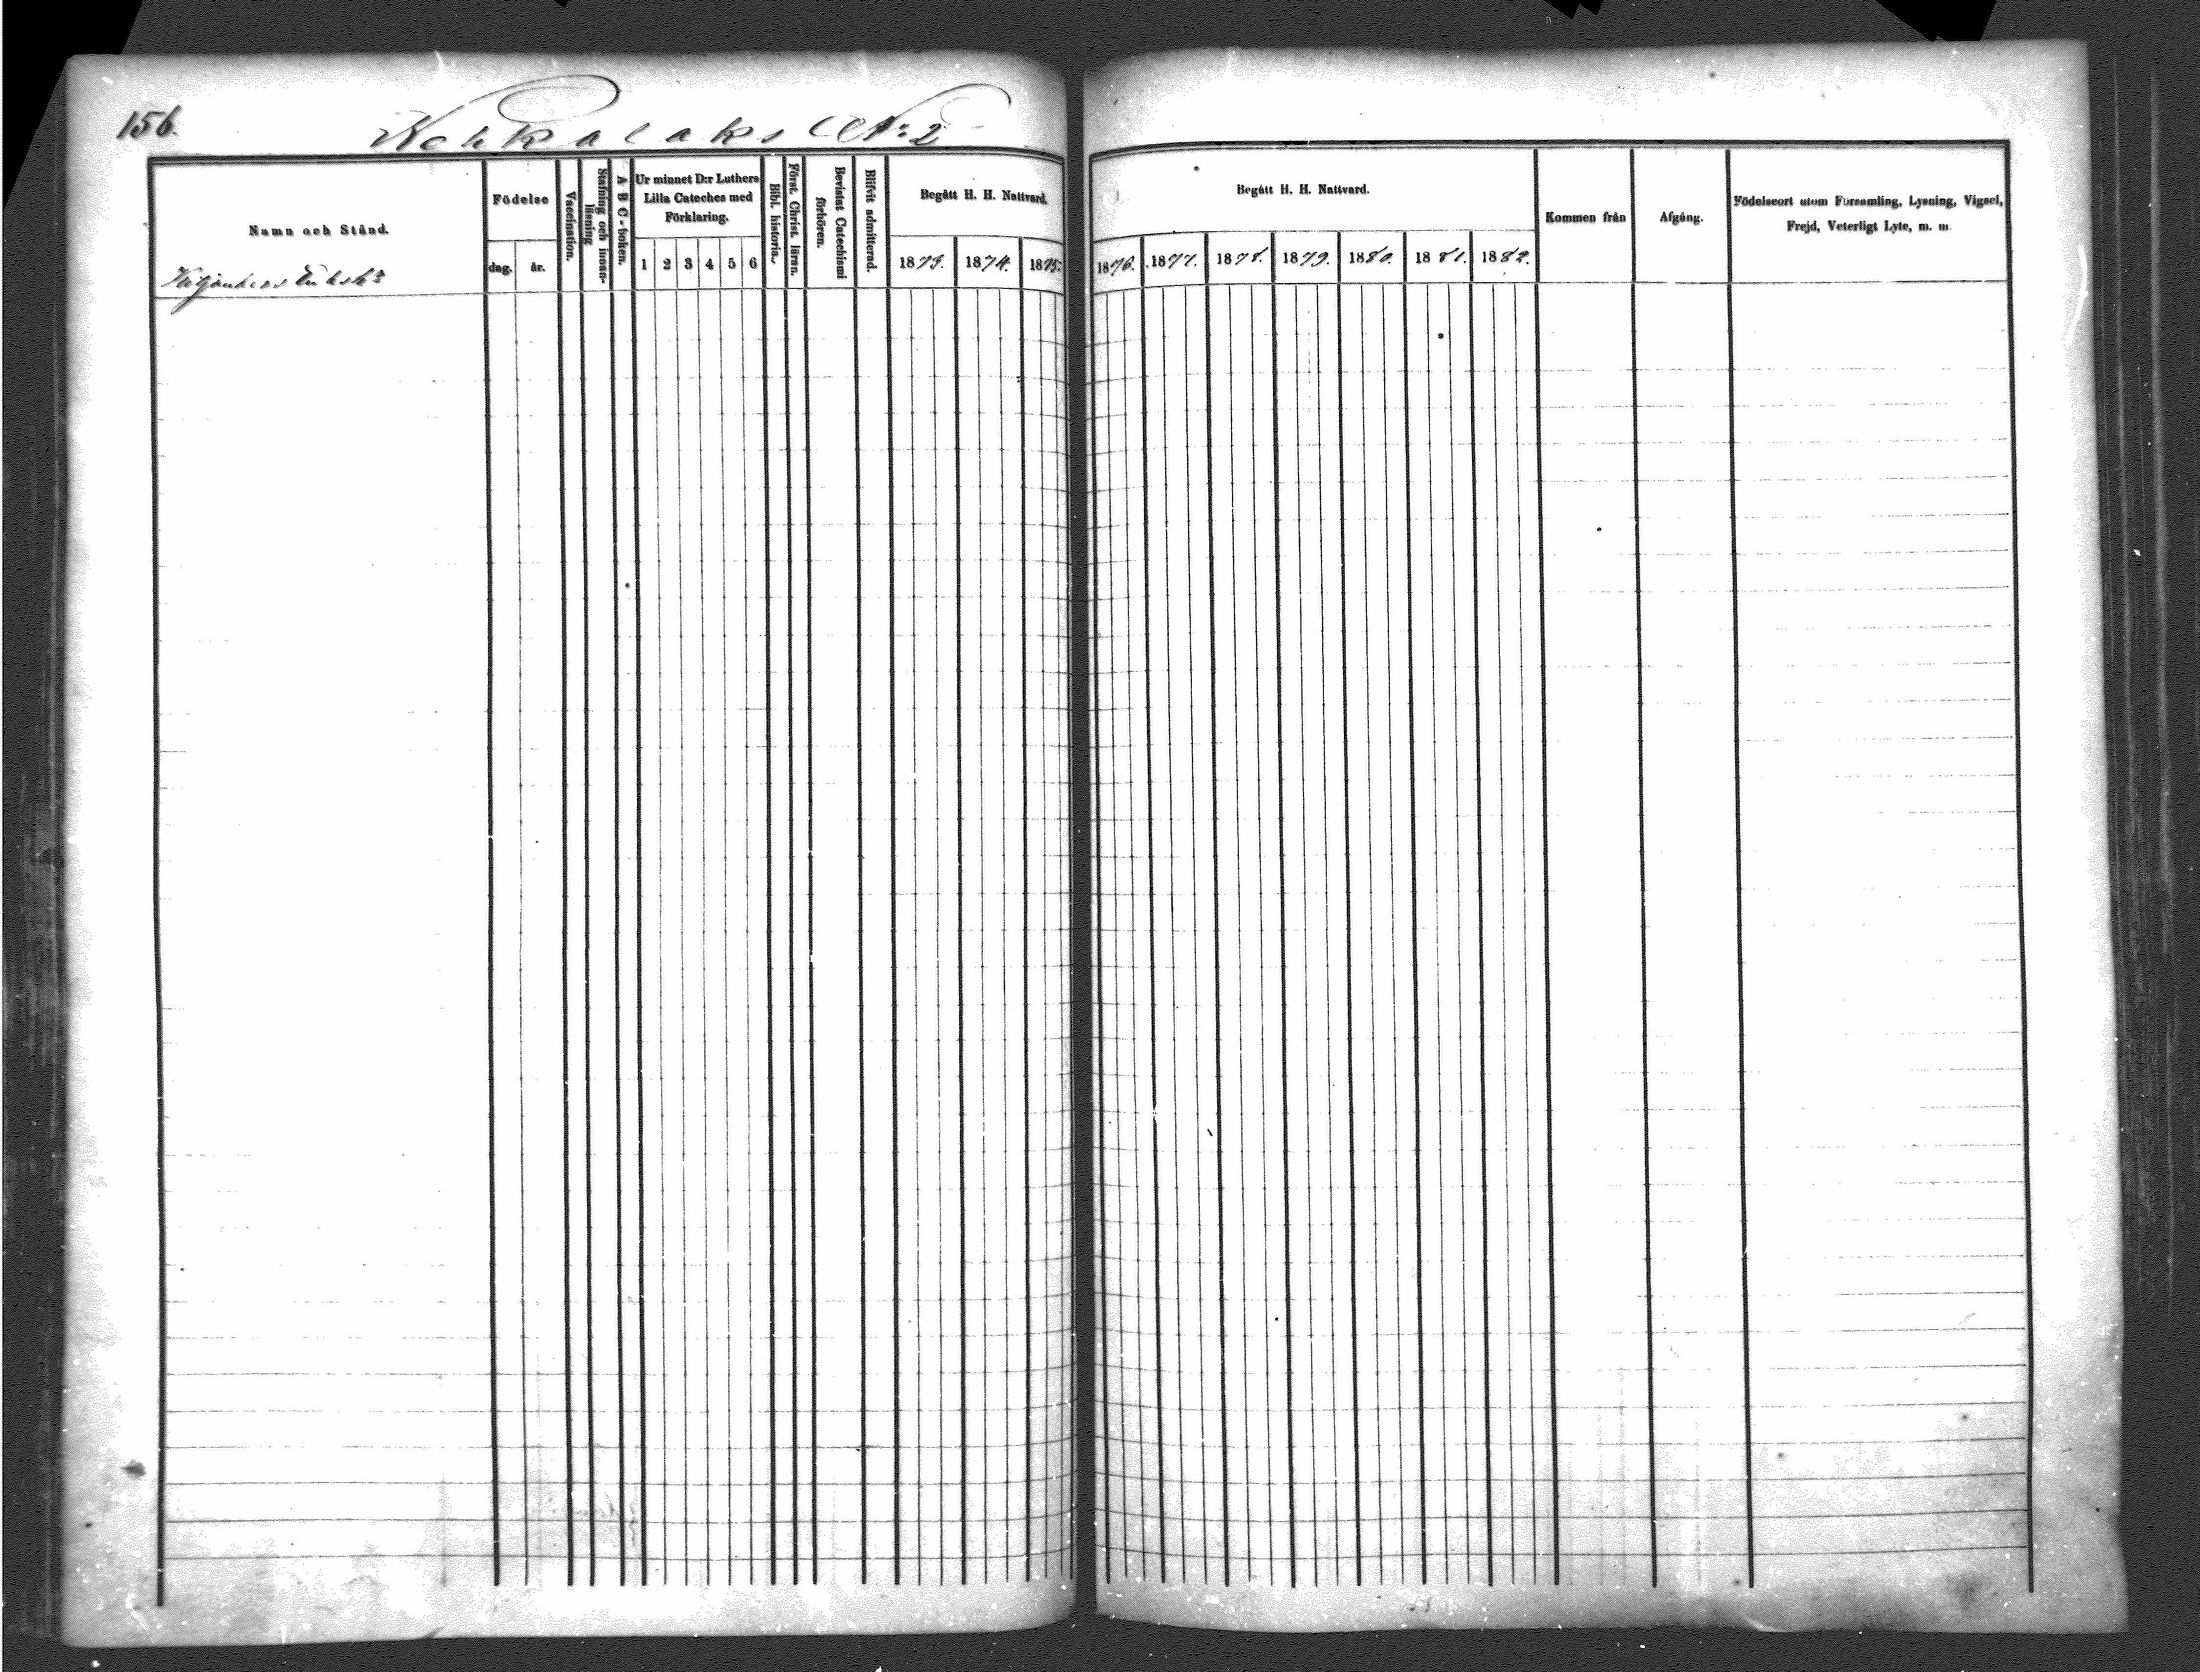 156.
Kohkalaks No: 2
Namn och Stånd.
Födelse
dag. år.
Vaccination.
Stafning och innanläsning
A B C-boken.
Ur minnet D:r Luthers
Lilla Cateches med
Förklaring.
1 2 3 4 5 6
Bibl. historia.
Först. Christ. läran.
Bevistat Catechismi
förhören.
Blifvit admitterad.
Begått H. H. Nattvard.
1873. 1874. 1875.
Begått H. H. Nattvard.
1876. 1877. 1878. 1879. 1880. 1881. 1882.
Kommen från
Afgång.
Födelseort utom Församling, Lysning, Vigsel,
Frejd, Veterligt Lyte, m. m.